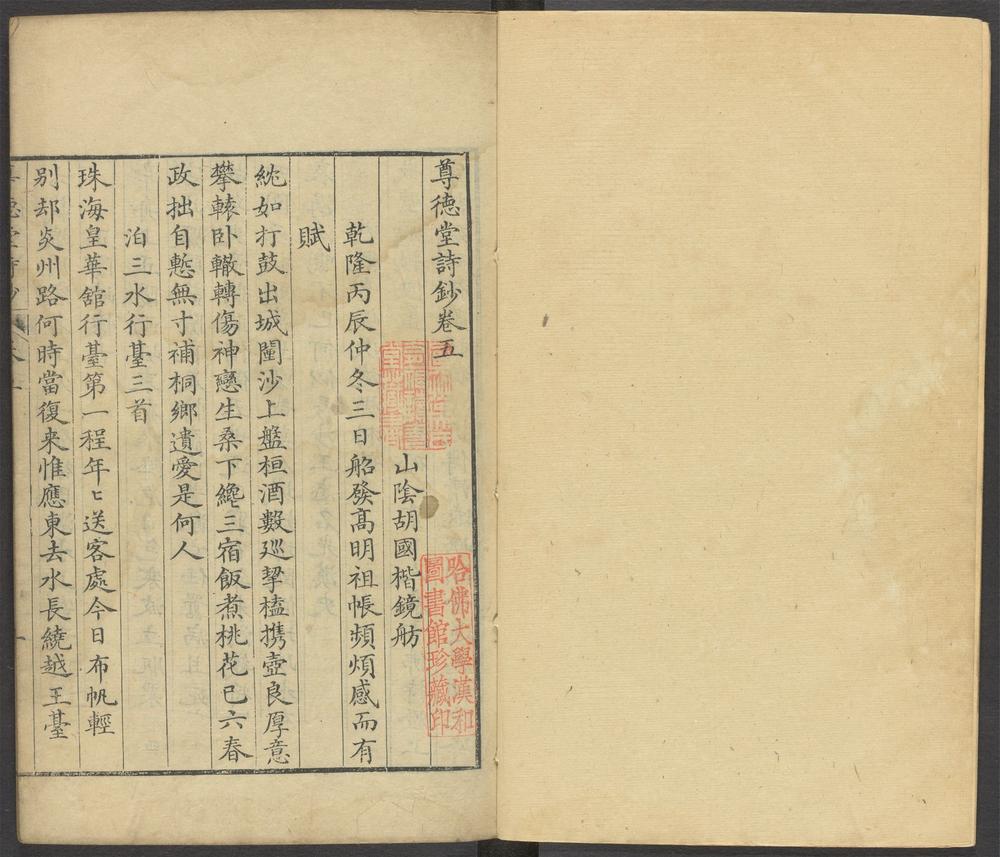 尊德堂詩鈔卷五
山陰胡國楷鏡舫
乾隆丙辰仲冬三日船發高明祖帳頻煩感而有
賦
紞如打鼓出城闉沙上盤桓酒數廵挈榼携壺良厚意
攀轅卧轍轉傷神戀生桑下纔三宿飯煮桃花已六春
政拙自慙無寸補桐鄉遺愛是何人
泊三水行臺三首
珠海皇華舘行臺第一程年〻送客處今日布帆輕
别却炎州路何時當復来惟應東去水長繞越王臺
哈佛大學漢和
圖書館珍藏印